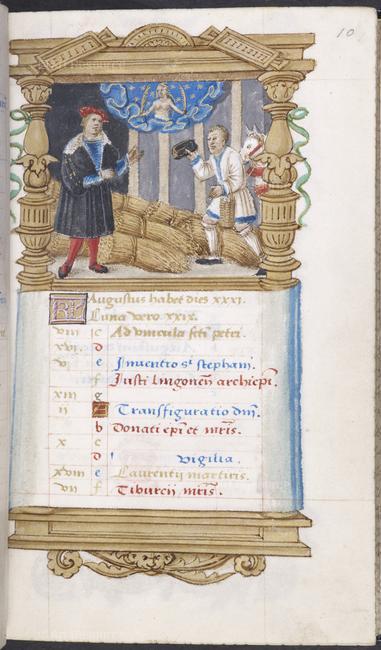 10
KL Augustus habet dies xxxi.
Luna vero xxix.
viii c Ad vincula scti petri.
xvi. d
v e Inventio st stephani.
f Justi lingonen archiepi.
xiii g
ii A Transfiguratio dni.
b Donati epi et mris.
x c
d vigilia.
xviii e Laurentii martiris.
vii f Tiburcii mris.